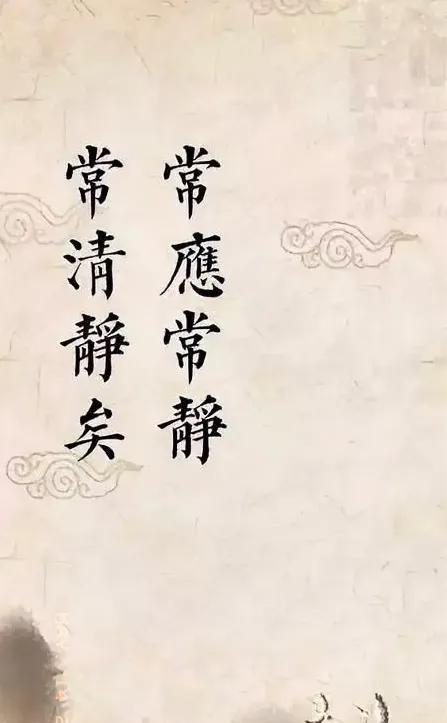 常應常靜
常清靜矣